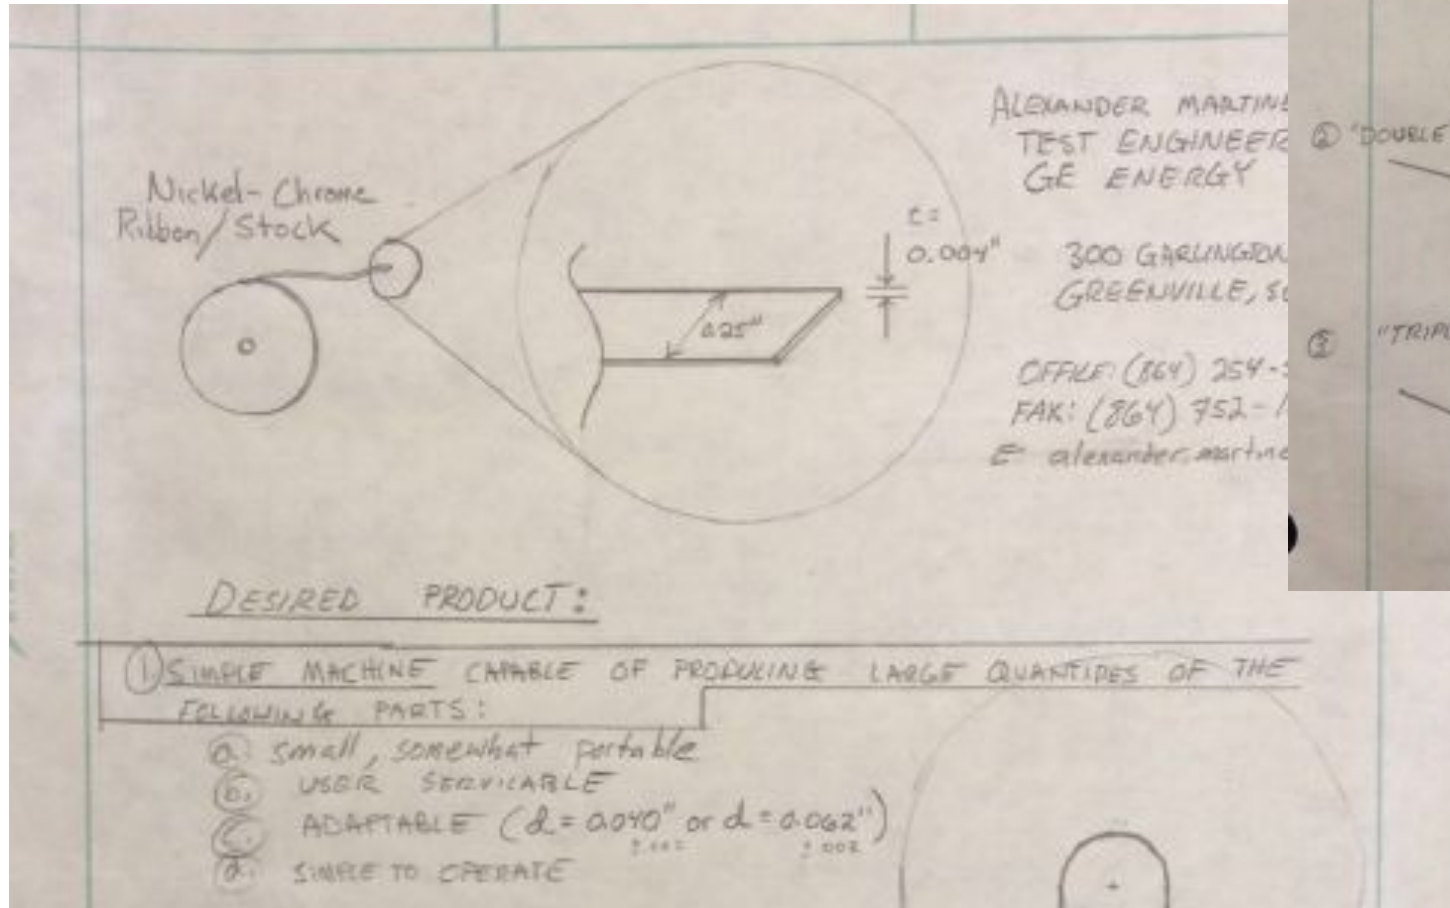 Nickel-Chrome
Ribbon/Stock
t=
0.004"
0.25"
ALEXANDER MARTINE
TEST ENGINEER
GE ENERGY
300 GARLINGTON
GREENVILLE, SC
OFFICE: (864) 254-
FAX: (864) 752-1
E alexander.martine
② "DOUBLE
③ "TRIPL
DESIRED PRODUCT:
① SIMPLE MACHINE CAPABLE OF PRODUCING LARGE QUANTIDES OF THE
FOLLOWING PARTS:
a. small, somewhat portable
b. USER SERVICABLE
c. ADAPTABLE (d=0.040" or d=0.062")
±.002 ±.002
d. SIMPLE TO OPERATE